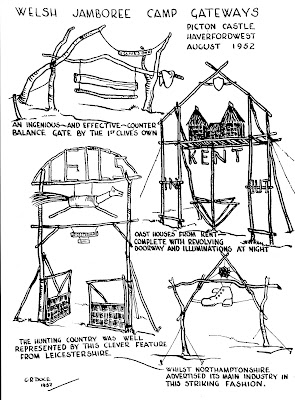 WELSH JAMBOREE CAMP GATEWAYS
PICTON CASTLE
HAVERFORDWEST
AUGUST 1952
AN INGENIOUS—AND EFFECTIVE—COUNTER
BALANCE GATE BY THE 1ST CLIVES OWN
KENT
IN
OUT
OAST HOUSES FROM KENT—
COMPLETE WITH REVOLVING
DOORWAY AND ILLUMINATIONS AT NIGHT
THE HUNTING COUNTRY WAS WELL
REPRESENTED BY THIS CLEVER FEATURE
FROM LEICESTERSHIRE.
1952
WHILST NORTHAMPTONSHIRE
ADVERTISED ITS MAIN INDUSTRY IN
THIS STRIKING FASHION.